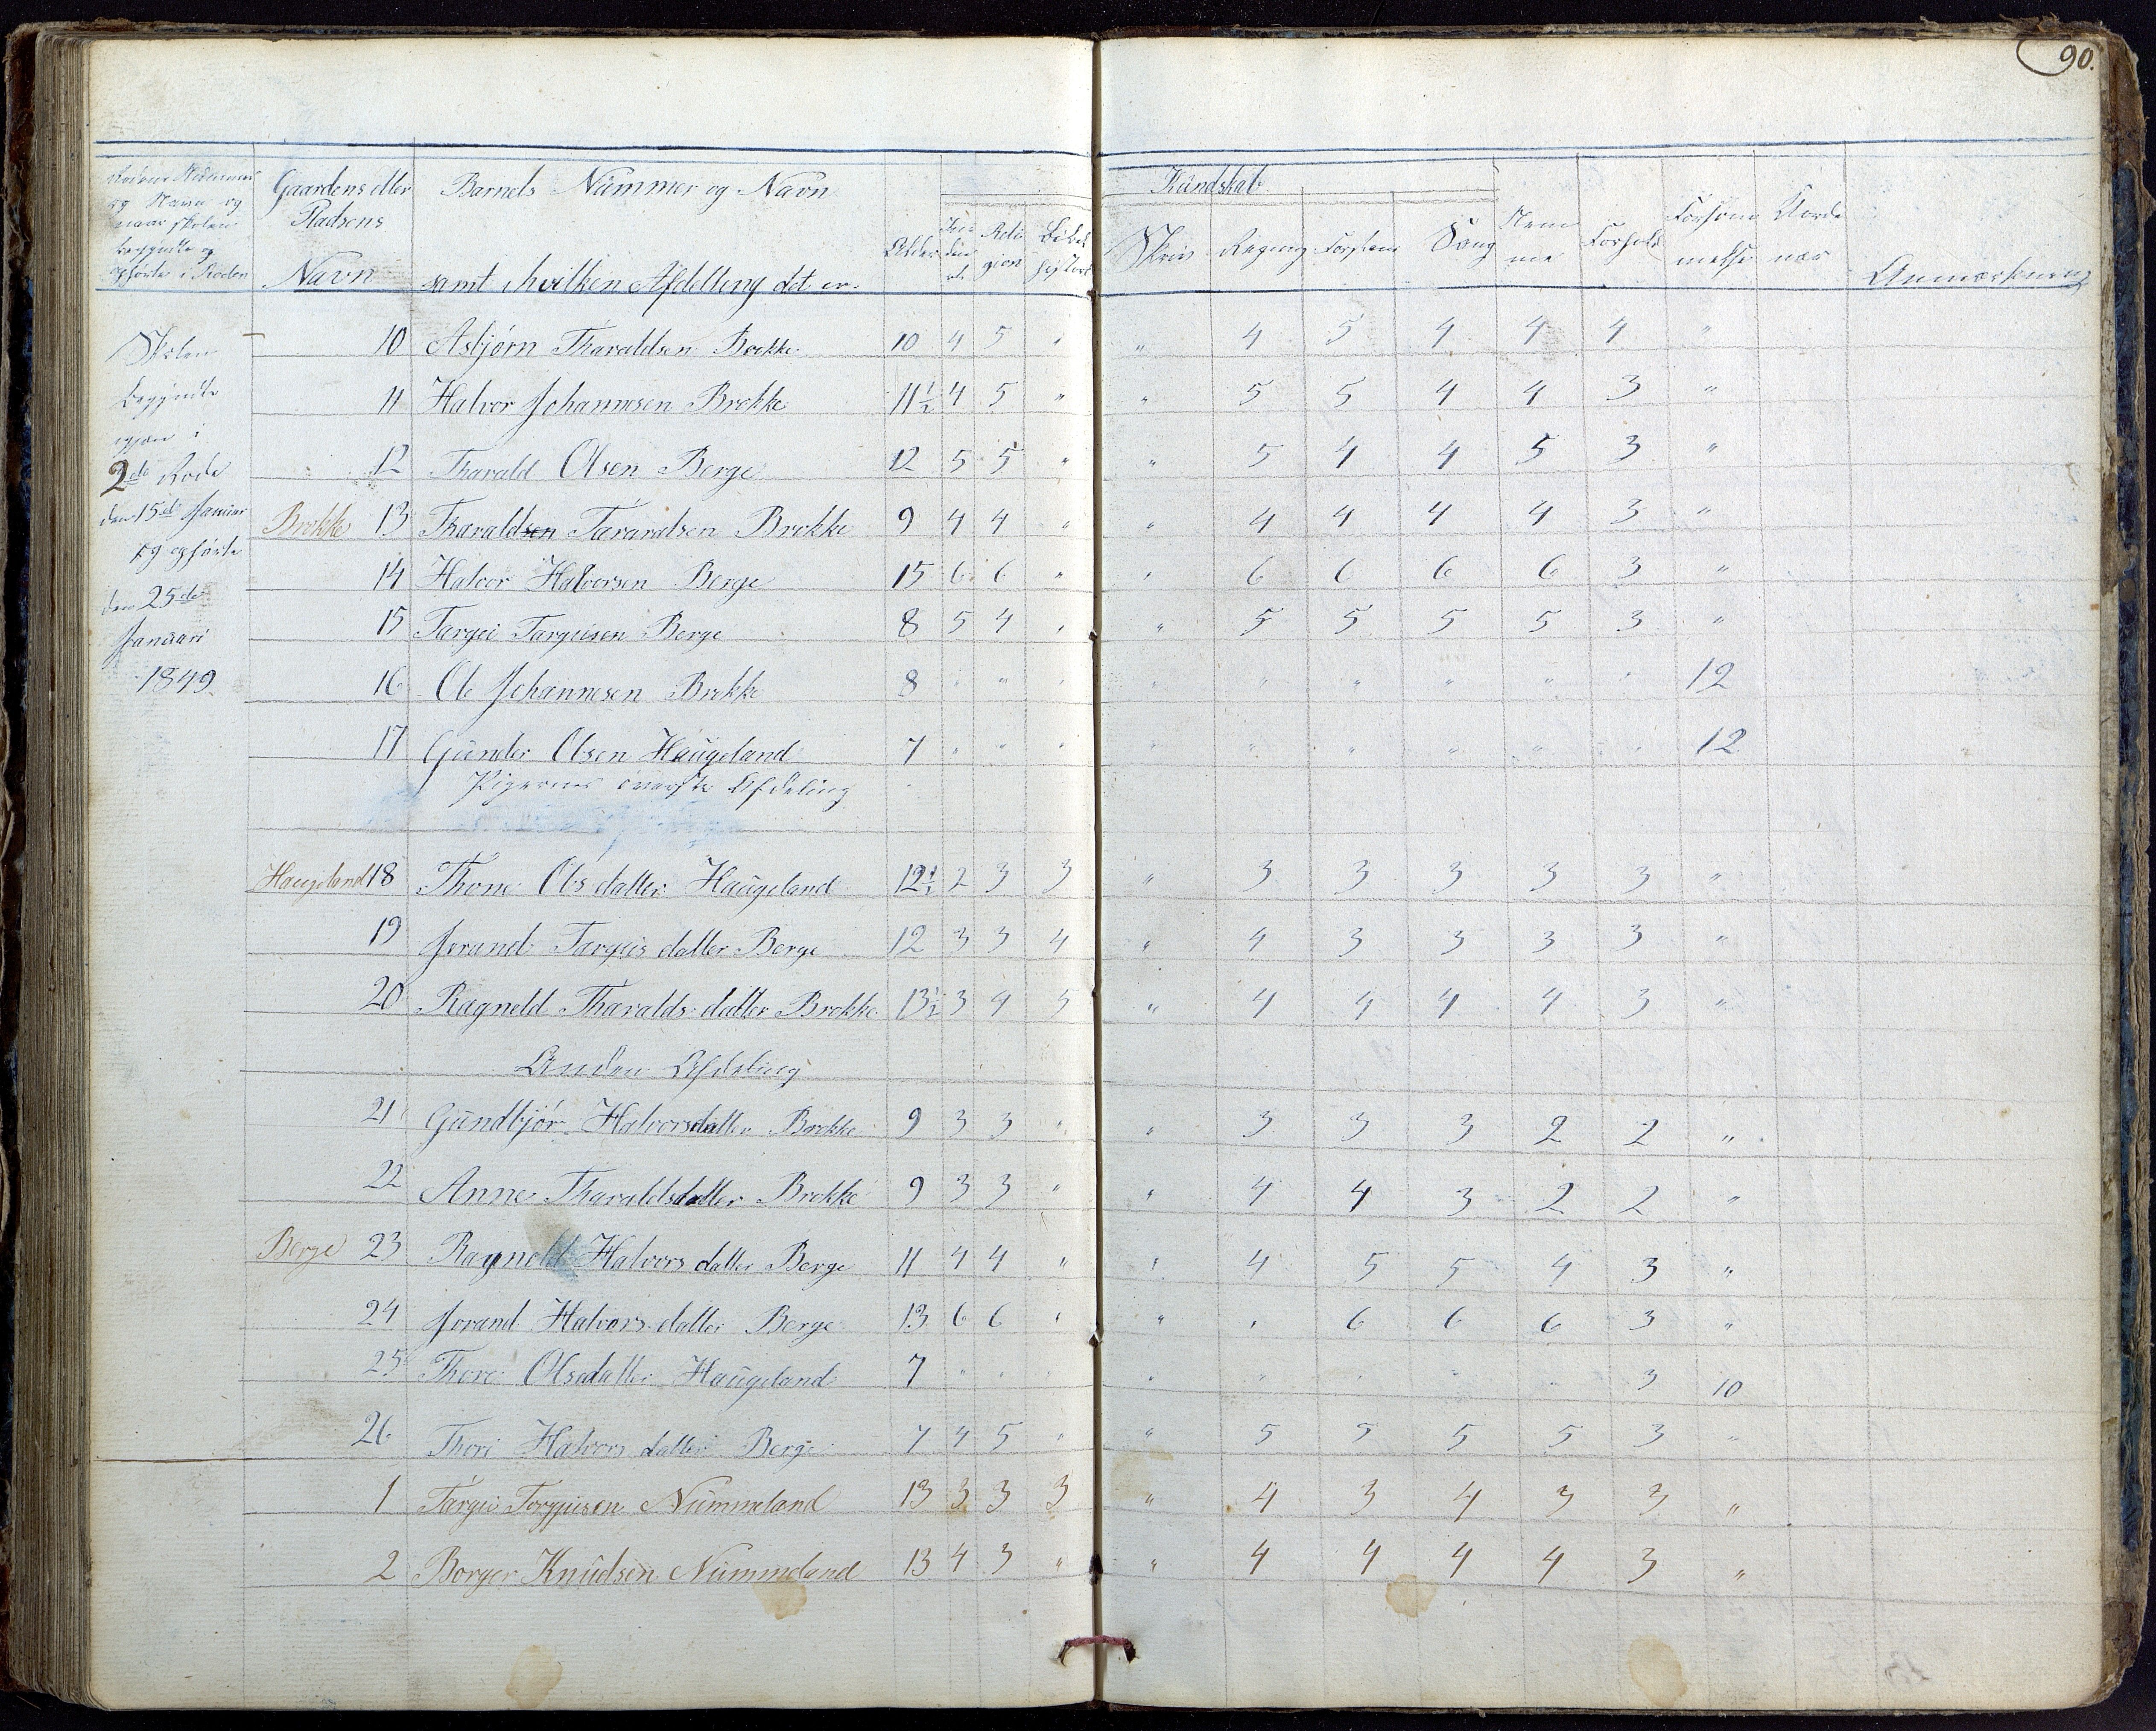 90.
Gaardens eller Pladsens Navn
Barnets Nummer og Navn samt hvilken Afdelleng det er.
Alder
Religion
Bibelhistorie
Kundskab
Skriv
Regning
Forstand
Sang
Nemme
Forhold
Forsømmelse
Anmærkning
Skolen
begyndte
igjen i
2de Rode
den 15de Januar
og opførte
den 25de
Januari
1849
10 Asbjørn Tharaldsen Brokke 10 4 5 " " 4 5 4 4 4 "
11 Halvor Johannesen Brokke 11½ 4 5 " " 5 5 4 4 3 "
12 Tharald Olsen Berge 12 5 5 " " 5 4 4 5 3 "
Brokke 13 Tharaldsen Tararalsen Brokke 9 4 4 " " 4 4 4 4 3 "
14 Halvor Halvorsen Berge 15 6 6 " " 6 6 6 6 3 "
15 Targei Targeisen Berge 8 5 4 " " 5 5 5 5 3 "
16 Ole Johannesen Brokke 8 " " " " " " " " " 12
17 Gunder Olsen Haugeland 7 " " " " " " " " " 12
Pigernes øverste Afdeling
Haugeland 18 Thone Olsdatter Haugeland 12½ 2 3 3 " 3 3 3 3 3 "
19 Jorand Targeisdatter Berge 12 3 3 4 " 4 3 3 3 3 "
20 Ragneld Tharaldsdatter Brokke 13½ 3 4 5 " 4 4 4 4 3 "
Anden Afdeling
21 Gundbjør Halvorsdatter Brokke 9 3 3 " " 3 3 3 2 2 "
22 Anne Tharaldsdatter Brokke 9 3 3 " " 4 4 3 2 2 "
Berge 23 Ragneld Halvorsdatter Berge 11 4 4 " " 4 5 5 4 3 "
24 Jorand Halvorsdatter Berge 13 6 6 " " " 6 6 6 3 "
25 Thore Olsdatter Haugeland 7 " " " " " " " " 3 10
26 Thori Halvorsdatter Berge 7 4 5 " " 5 5 5 5 3 "
1 Targei Torgjusen Nummeland 13 3 3 3 " 4 3 4 3 3 "
2 Borger Knudsen Nummeland 13 4 3 " " 4 4 4 4 3 "